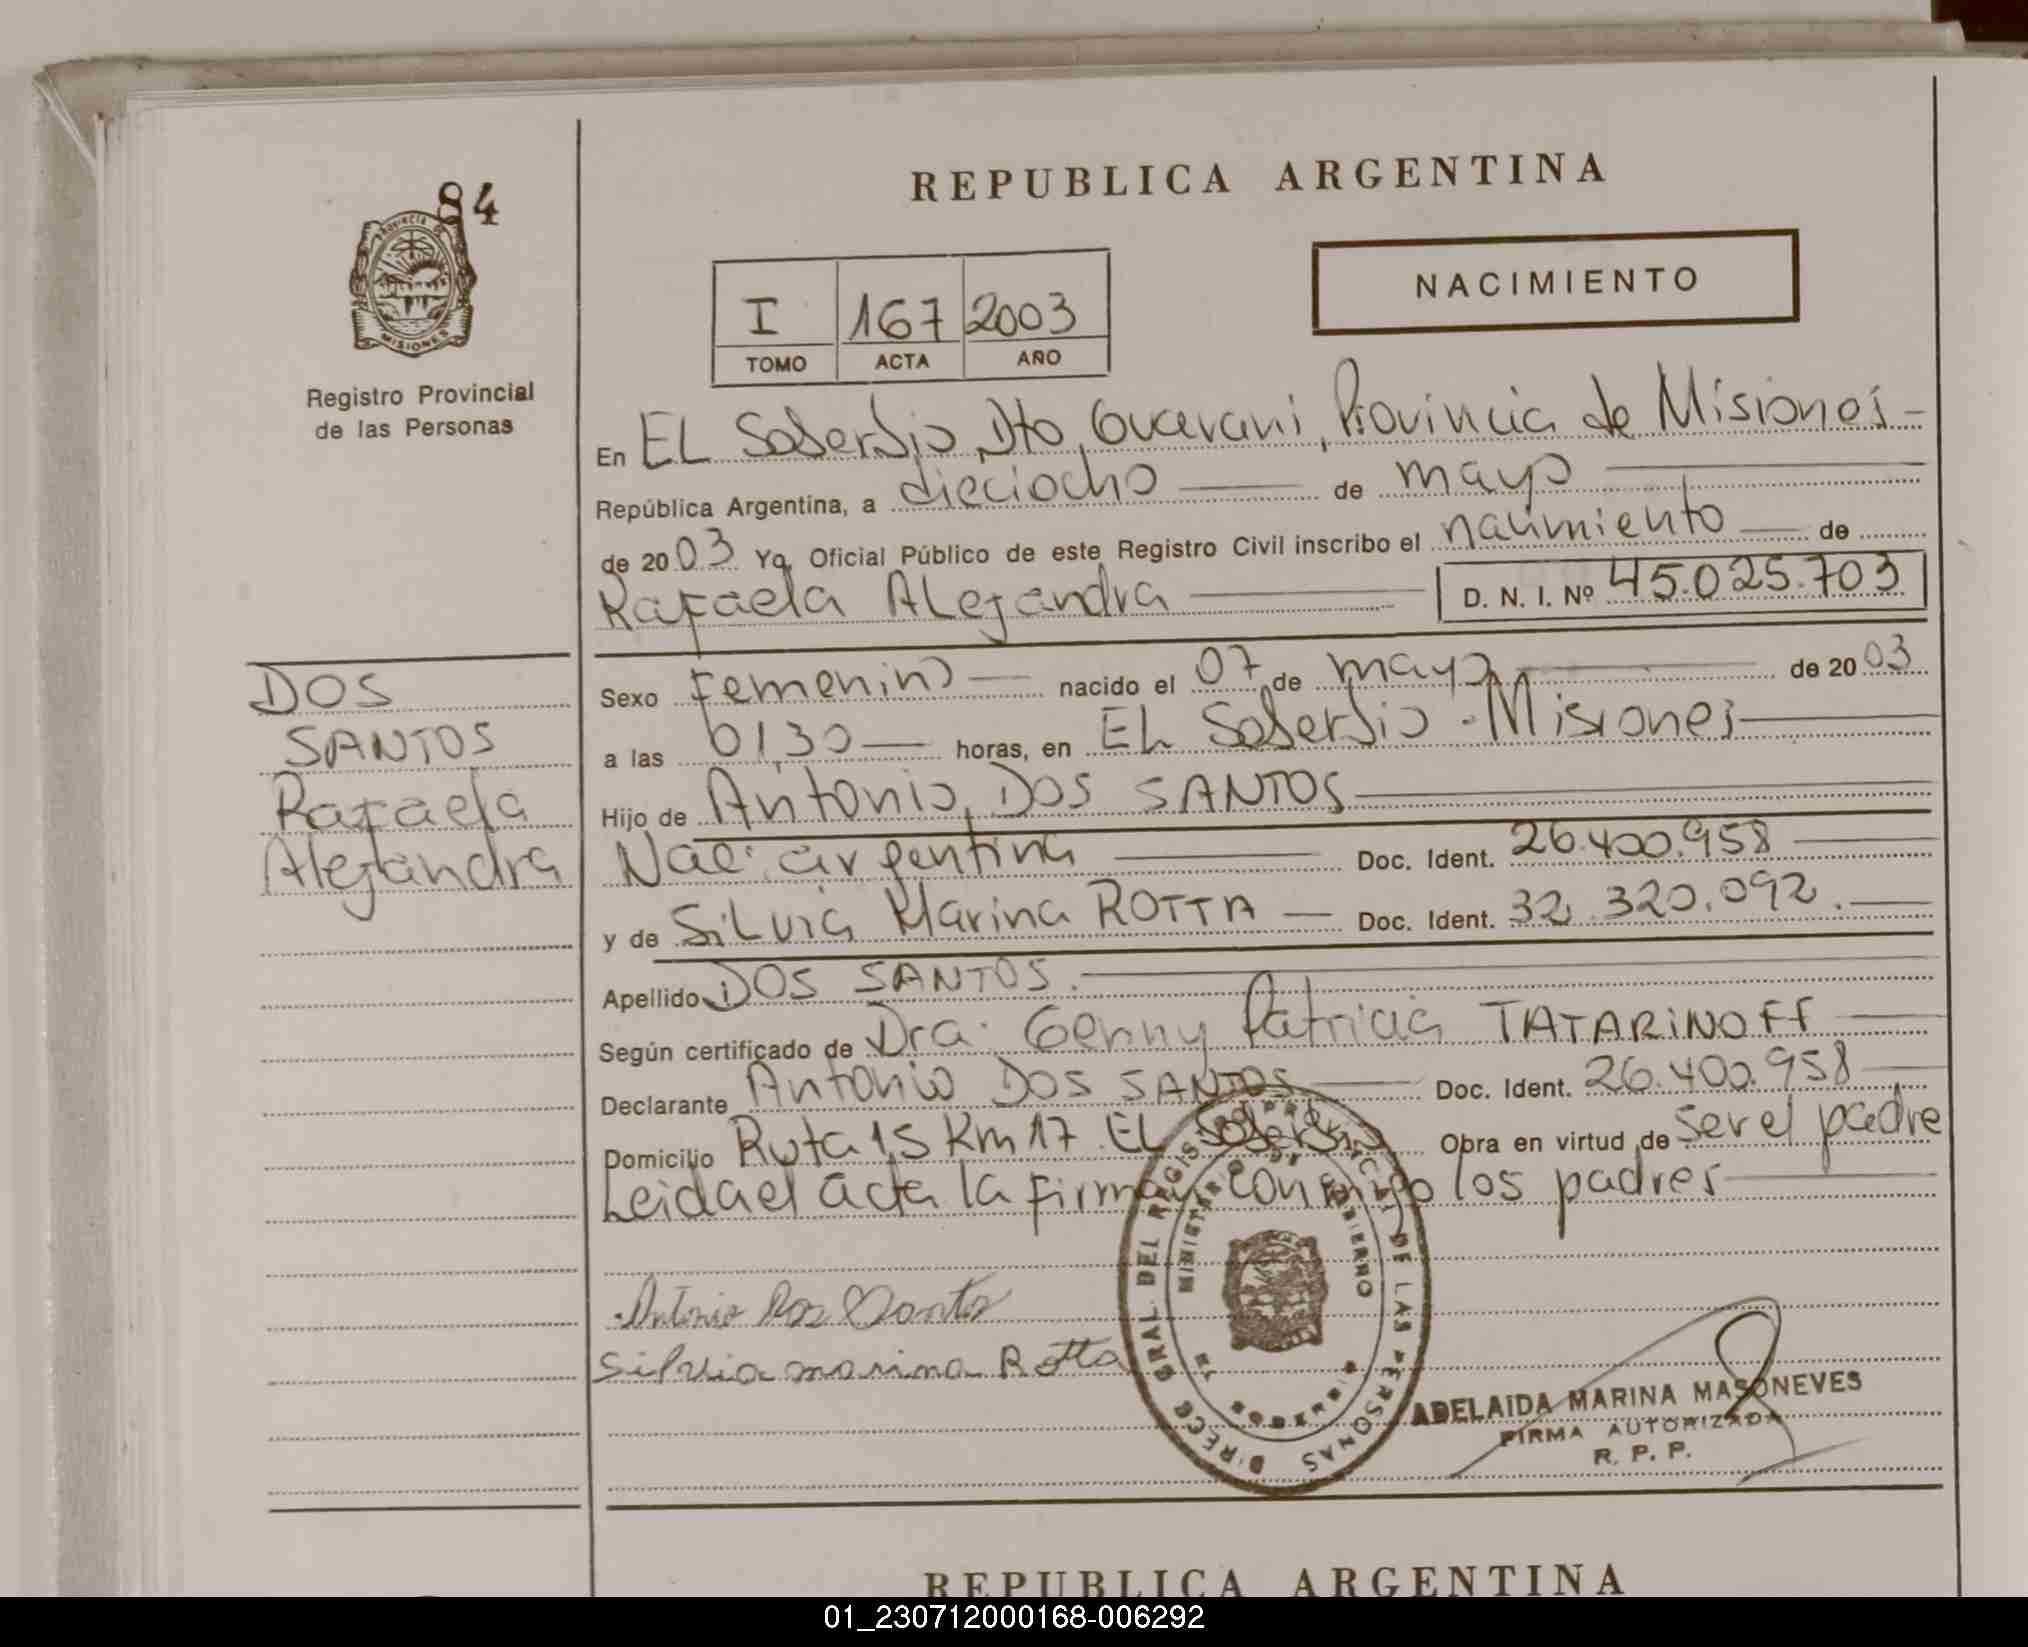 84
PROVINCIA DE
MISIONES
Registro Provincial
de las Personas
REPUBLICA ARGENTINA
I 167 2003
TOMO ACTA AÑO
NACIMIENTO
En EL Soberbio, Dto, Guarani, Provincia de Misiones
República Argentina, a dieciocho de mayo
de 2003 Yo, Oficial Público de este Registro Civil inscribo el nacimiento de
Rafaela ALejandra D. N. I. Nº 45.025.703
DOS
SANTOS
Rafaela
Alejandra
Sexo Femenino nacido el 07 de mayo de 2003
a las 01,30 horas, en EL Soberbio - Misiones
Hijo de Antonio, DOS SANTOS
Nac: argentina Doc. Ident. 26.400.958
y de SiLvia Marina ROTTA Doc. Ident. 32.320.092.
Apellido DOS SANTOS.
Según certificado de Dra. Genny Patricia TATARiNOFF
Declarante Antonio DOS SANTOS Doc. Ident. 26.400.958
Domicilio Ruta 15 Km 17 EL Soberbio Obra en virtud de ser el padre
Leida el acta la firman conmigo los padres
Antonio Dos Santos
Silvia marina Rotta
DIRECC GRAL. DEL REGISTRO PROVINCIAL DE LAS PERSONAS
MINISTERIO DE GOBIERNO
MISIONES
ADELAIDA MARINA MASONEVES
FIRMA AUTORIZADA
R. P. P.
REPUBLICA ARGENTINA
01_230712000168-006292